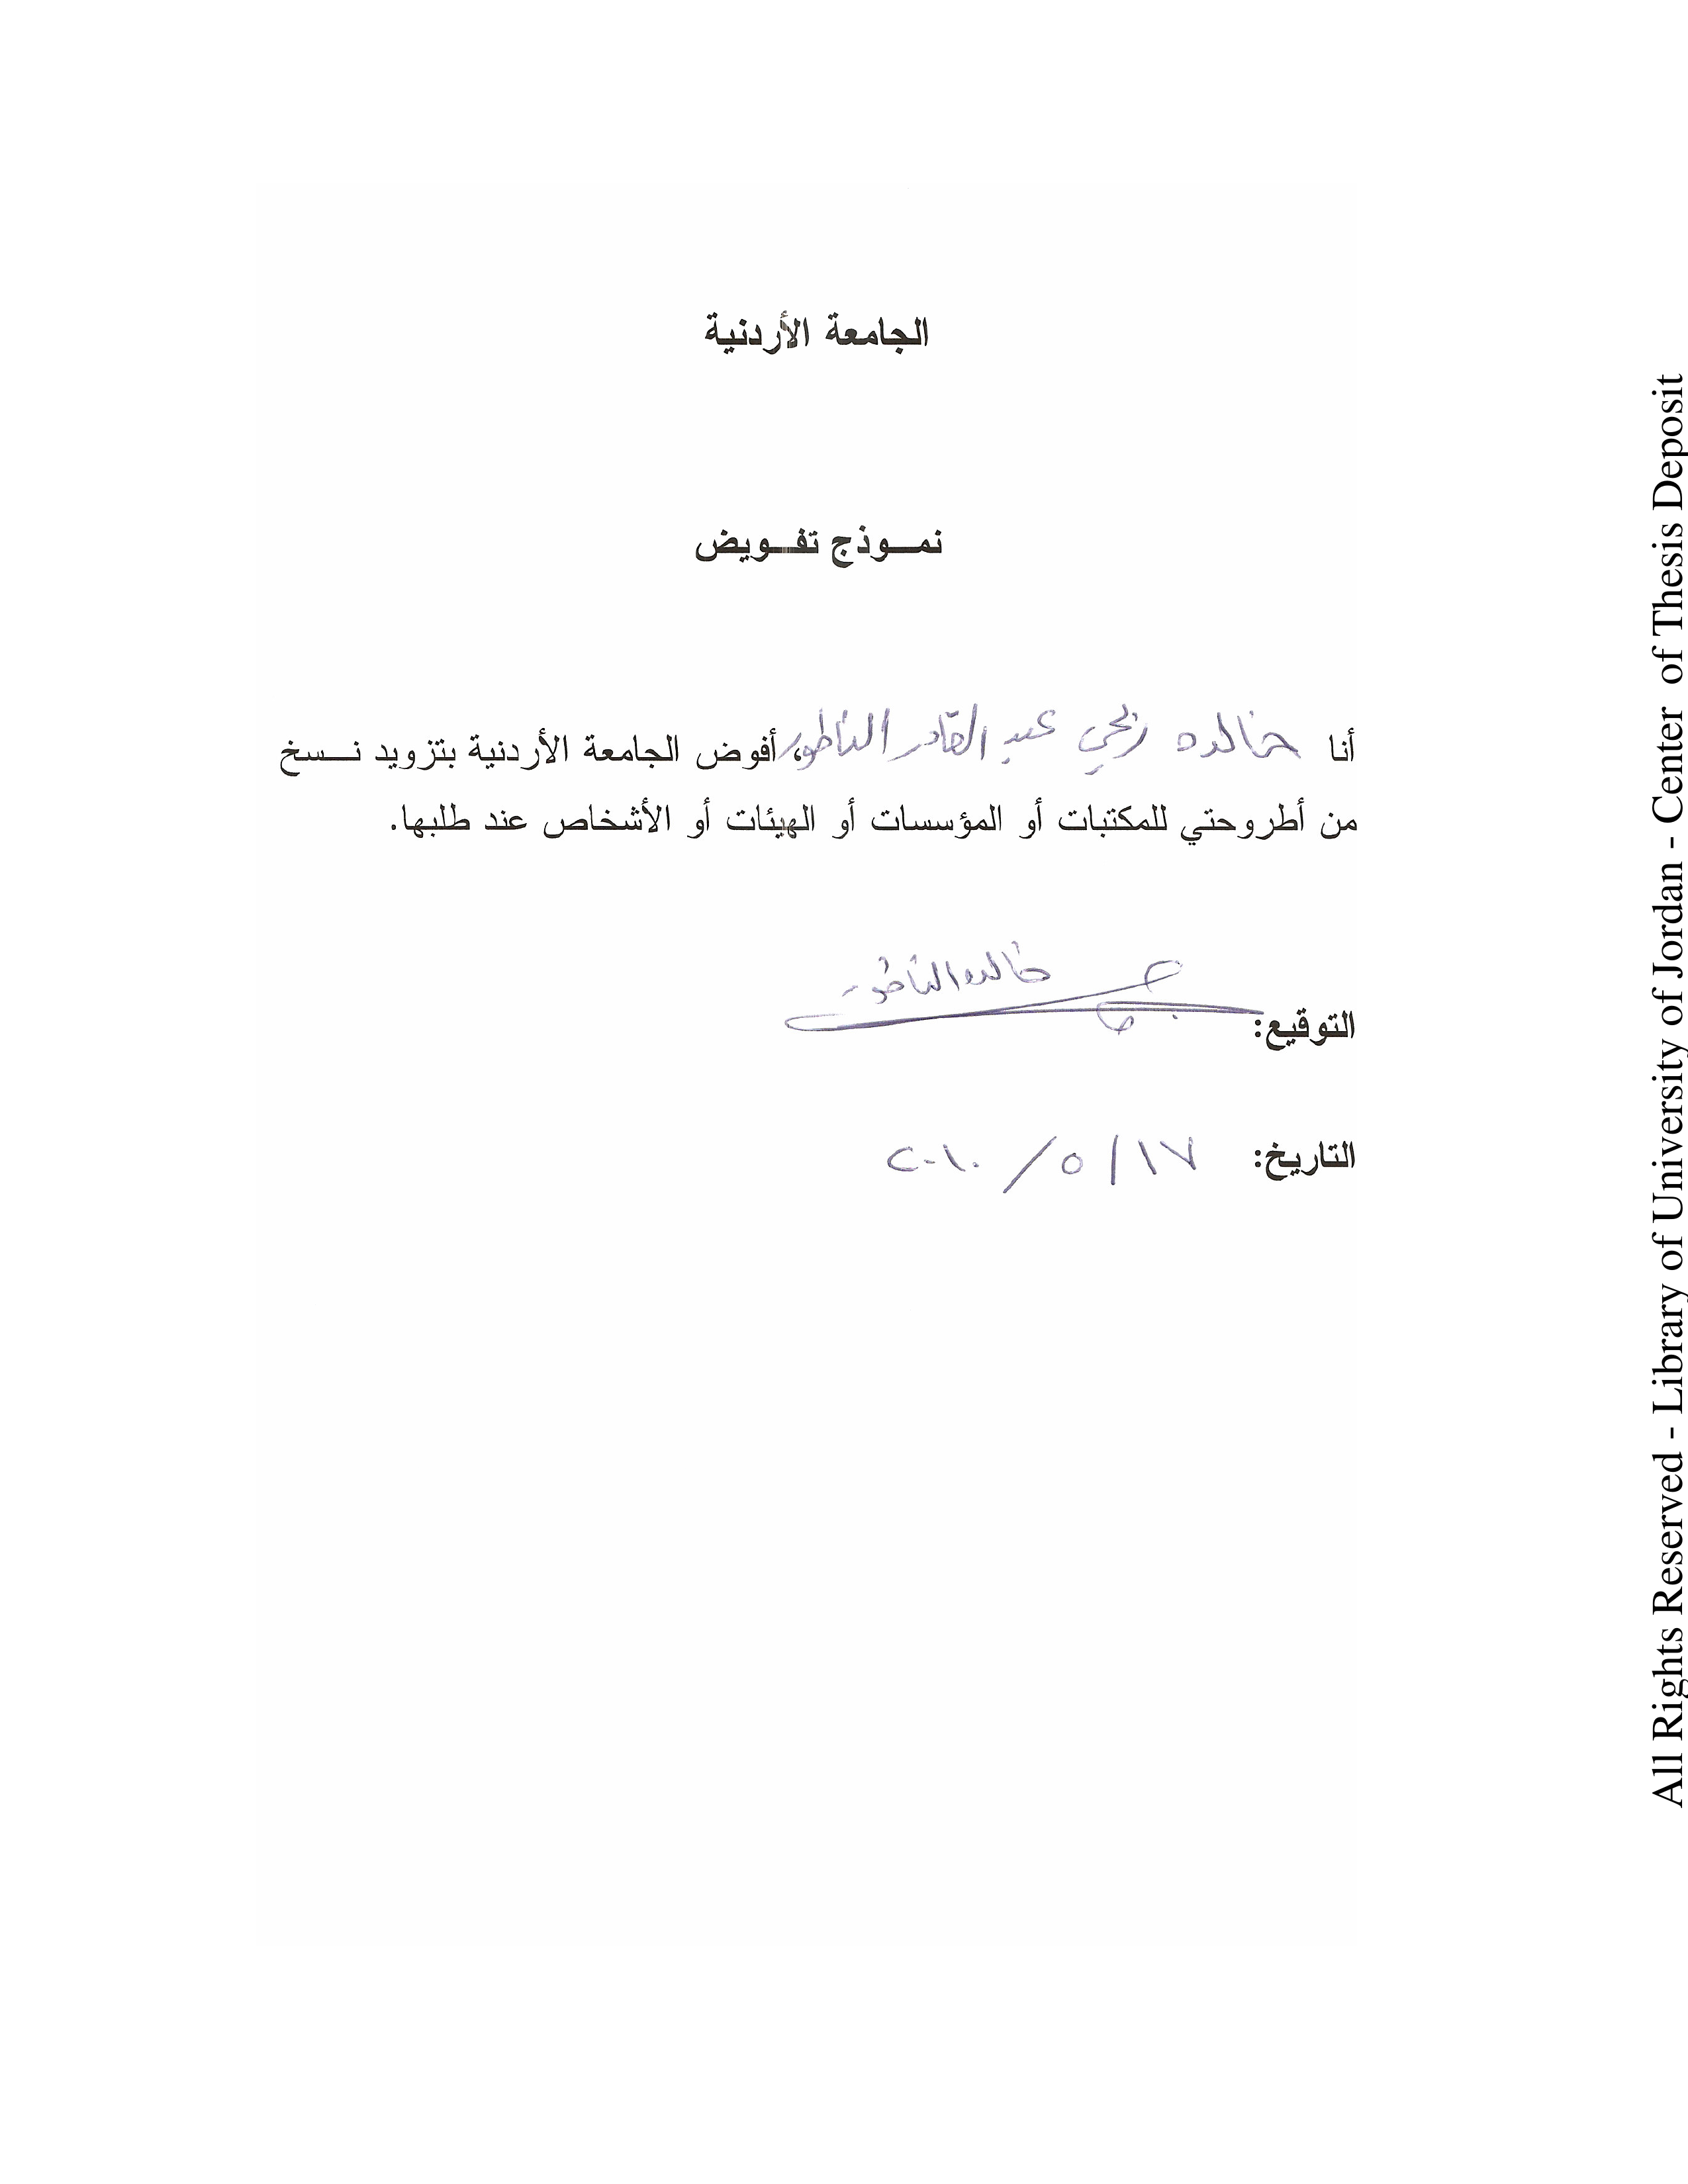 الجامعة الأردنية
نمـــوذج تفـــويض
أنا خالده عبد القادر الناطور، أفوض الجامعة الأردنية بتزويد نـــسخ
من أطروحتي للمكتبات أو المؤسسات أو الهيئات أو الأشخاص عند طلبها.
خالده الناطور
التوقيع:
التاريخ: ١٧ / ٥ / ٢٠١٠
All Rights Reserved - Library of University of Jordan - Center of Thesis Deposit